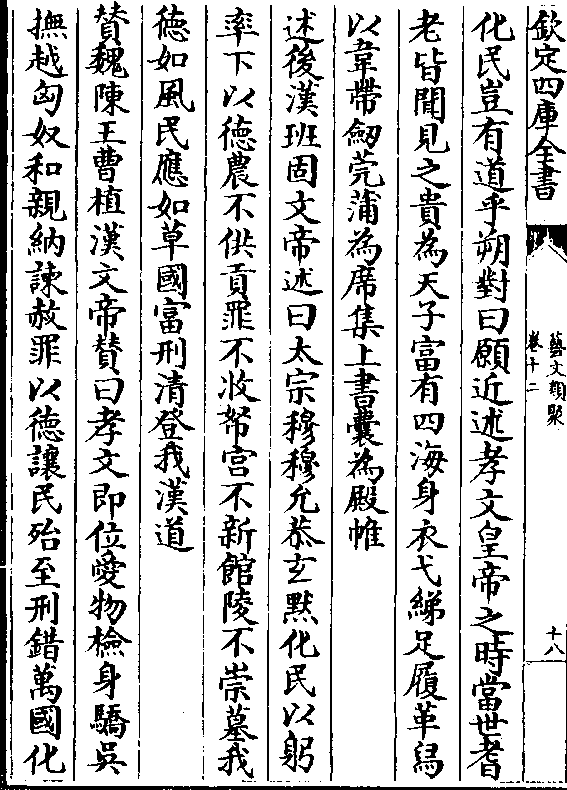 欽定四庫全書
藝文類聚
卷十二
十八
化民豈有道乎朔對曰願近述孝文皇帝之時當世耆
老皆聞見之貴為天子富有四海身衣弋綈足履革舄
以韋帶劒莞蒲為席集上書囊為殿帷
述後漢班固文帝述曰太宗穆穆允恭玄默化民以躬
率下以徳農不供貢罪不收帑宫不新館陵不崇墓我
徳如風民應如草國富刑清登我漢道
賛魏陳王曹植漢文帝賛曰孝文即位愛物檢身驕吳
撫越匈奴和親納諌赦罪以徳讓民殆至刑錯萬國化